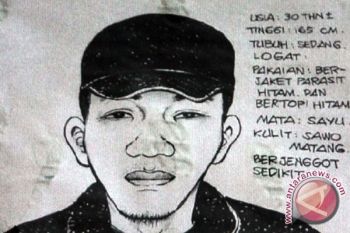 USIA : 30 THN ±
TINGGI : 165 CM.
TUBUH : SEDANG.
LOGAT :
PAKAIAN : BER-
JAKET PARASIT
HITAM. DAN
BERTOPI HITAM
MATA : SAYU.
KULIT : SAWO
MATANG.
BERJENGGOT
SEDIKIT
www.antaranews.com